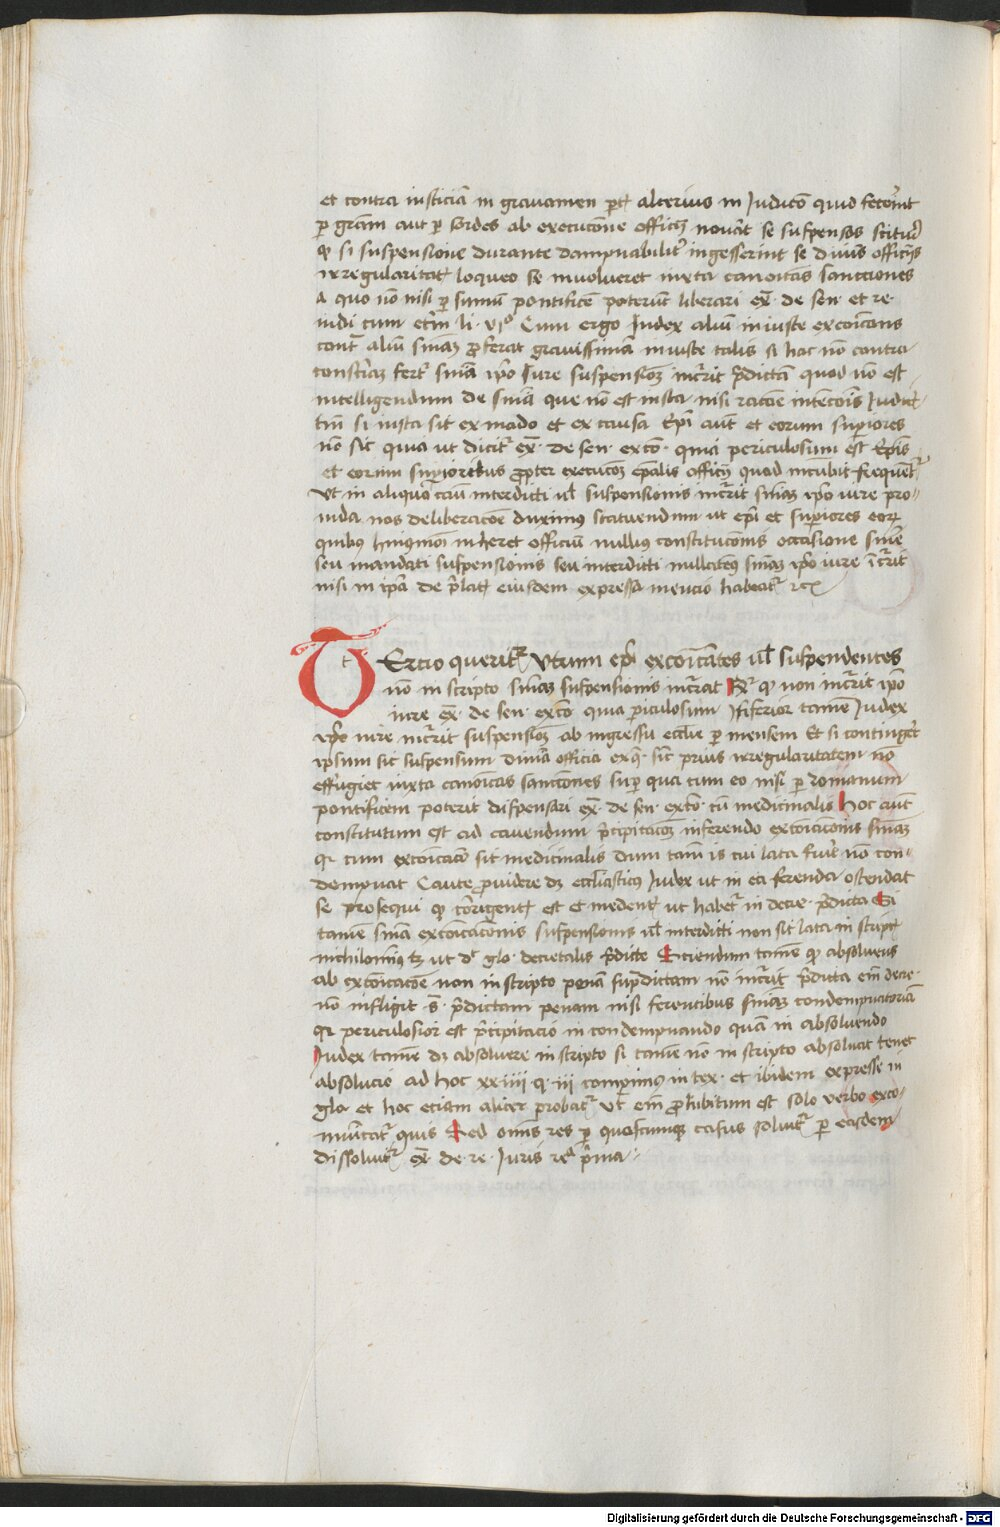 et contra iusticiā in grauamen ꝑtꝭ alterius in Judicō quid fecerīt
ꝑ grām aut ꝑ sordes ab execucōne officij nouāt se suspensos scitur̄
ꝙ si suspensione durante dampnabilit̄ ingesserint se diuīs officijs
irregularitatꝭ loqueo se inuolueret iuxta canoīcas sancciones
a quo nō nisi ꝑ sūmū pontificē poterūt liberari ex̄ · de sen · et re ·
iudi cum et̄ni li · vjo Cum ergo Iudex aliū iniuste excōicans
cont̄ aliū sniāꝫ ꝓferat grauissimā iniuste talis si hoc nō contra
consciēaꝫ fert̄ sniā ip̄o Iure suspensiōꝫ incr̄rit p̄dictā quod nō est
intelligendum de sniā que nō est iusta nisi racōne intencōis Judicꝭ
tm̄ si iusta sit ex modo et ex causa Ep̄i aūt et eorum sup̄iores
nō sic quia ut dicit̄ ex̄ · de sen · exco · quia periculosum est Ep̄is
et eorum sup̄ioribus ꝓpter execucōꝫ ep̄alis officij quod incūbit frequent̄
Vt in aliquo casu interdicti ul̄ suspensionis incr̄rit sniāꝫ ip̄o iure pro
uida nos deliberacōne duximus statuendum ut ep̄i et sup̄iores eoꝝ
quibus huiusmōi inheret officiū nullius constitucōnis occasione sniē
seu mandati suspensionis seu interdicti nullatēus sniāꝫ ip̄o iure īcr̄rit
nisi in ip̄a de p̄latꝭ eiusdem expressa mencio habeat̄ ⁊cꝭ
TErcio querit̄ Vtrum ep̄i excōicātes ul̄ suspendentes
nō in scripto sniāꝫ suspensionis incr̄rāt R̄ ꝙ non incr̄rit ip̄o
iure ex̄ · de sen · exco quia ꝑiculosum Inferior tamē Iudex
ip̄o iure incr̄rit suspensiōꝫ ab ingressu ecclīe ꝑ mensem Et si contingēt
ipsum sic suspensum diuīa officia exꝗ · sic̄ prius irregularitatem nō
effugiet iuxta canonicas sancciones suꝑ qua cum eo nisi ꝑ romanum
pontificem poterit dispensari ex̄ · de sen · exco · cū medicinalis Hoc aūt
constitutum est ad cauendum p̄cipitacōꝫ inferendo excōicaciōnis sniāꝫ
qꝛ cum excōicacio sit medicinalis dum tam̄ is cui lata fuīt nō con
dempnat Caute ꝓuidere dꝫ ecclīasticus Iudex ut in ea ferenda ostendat
se prosequi ꝙ corrigentꝭ est et medentꝭ ut habet̄ in decre · p̄dicta Si
tamē sniā excōicacōnis suspensionis ul̄ interdicti non sit lata in scriptꝭ
nichilominus tꝫ ut dꝭ glo · decretalis p̄dicte Sciendum tamē ꝙ absoluens
ab excōicacōe non in scripto penā sup̄dictam nō incr̄rit p̄dicta em̄ decre ·
nō infligit ·s̄· p̄dictam penam nisi ferentibus sniāꝫ condempnatoriā
qꝛ periculosior est p̄cipitacio in condempnando quā in absoluendo
Iudex tamē dꝫ absoluere in scripto si tamē nō in scripto absoluat tenet
absolucio ad hoc xxiiij q · iij comp̄imus in tex · et ibidem expresse in
glo · et hoc etiam aliter probat̄ Vt em̄ ꝓhibitum est solo verbo exco
municat̄ quis Sed om̄is res ꝑ quascumqꝫ causas soluit̄ ꝑ easdem
dissoluit̄ ex̄ · de · re · Iuris re̊ p̄ma ·
Digitalisierung gefördert durch die Deutsche Forschungsgemeinschaft - DFG